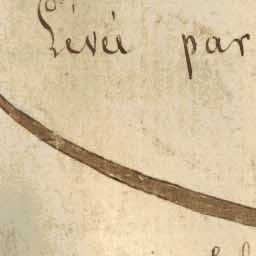 Lévée par